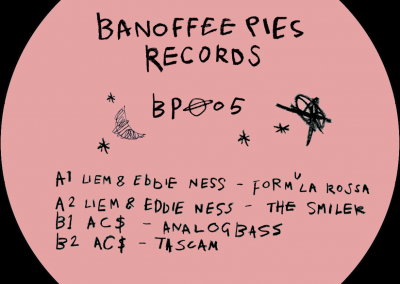 BANOFFEE PIES
RECORDS
BPØ05
A1 LIEM & EDDIE NESS - FORMULA ROSSA
A2 LIEM & EDDIE NESS - THE SMILER
B1 AC$ - ANALOGBASS
B2 AC$ - TASCAM